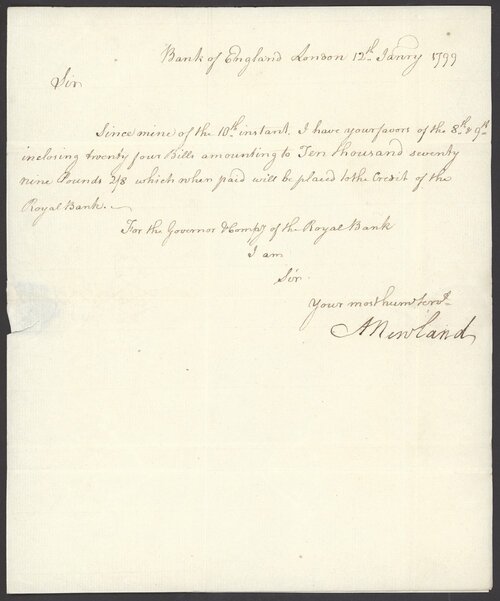 Bank of England London 12th Janry 1799
Sir
Since mine of the 10th instant, I have your favors of the 8th & 9th
inclosing twenty four Bills amounting to Ten thousand seventy
nine Pounds 2/8 which when paid will be placed to the Credit of the
Royal Bank.
For the Governor & Compy of the Royal Bank
I am
Sir
Your most hum Servt
A Newland